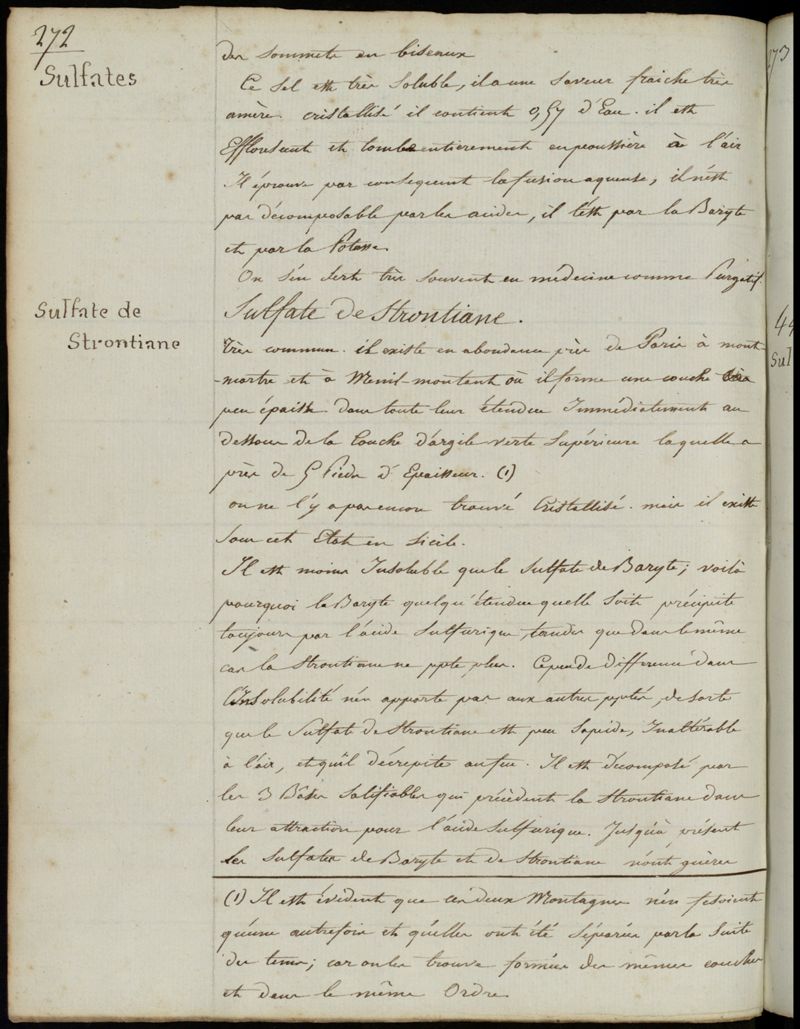 272
Sulfates
des sommets en biseaux
Ce sel est très soluble, il a une saveur fraiche très
amère. cristallisé il contient 0,57 d'Eau. il est
Efflorescent et tombe entierement en poussière à l'air
Il éprouve par consequent la fusion aqueuse, il n'est
pas décomposable par les acides, il l'est par la Baryte
et par la Potasse.
On s'en sert très souvent en médecine comme Purgatif.
Sulfate de Strontiane
Sulfate de Strontiane.
très commun. il existe en abondance près de Paris à mont-
-martre et à Menil-montent où il forme une couche
peu épaisse dans toute leur étendue Immédiatement au
dessous de la Couche d'argile verte Supérieure laquelle a
près de 5 Pieds d'Epaisseur. (1)
on ne l'y a pas encore trouvé Cristallisé. mais il existe
sous cet Etat en Sicile.
Il est moins Insoluble que le Sulfate de Baryte; voilà
pourquoi la Baryte quelqu'étendue quelle soit précipite
toujours par l'acide Sulfurique, tandis que dans le même
cas la Strontiane ne ppte plus. Ce peu de différence dans
l'Insolubilité n'en apporte pas aux autres pptés, de sorte
que le Sulfate de Strontiane est peu Sapide, Inaltérable
à l'air, et qu'il décrepite au feu. Il est décomposé par
les 3 Bases Salifiables qui précèdent la Strontiane dans
leur attraction pour l'acide Sulfurique. Jusqu'à présent
les Sulfates de Baryte et de Strontiane n'ont guères
(1) Il est évident que ces deux Montagnes n'en fesoient
qu'une autrefois et qu'elles ont été Séparées par la Suite
des tems; car on les trouve formées des mêmes couches
et dans le même Ordre.
273
44
Sul